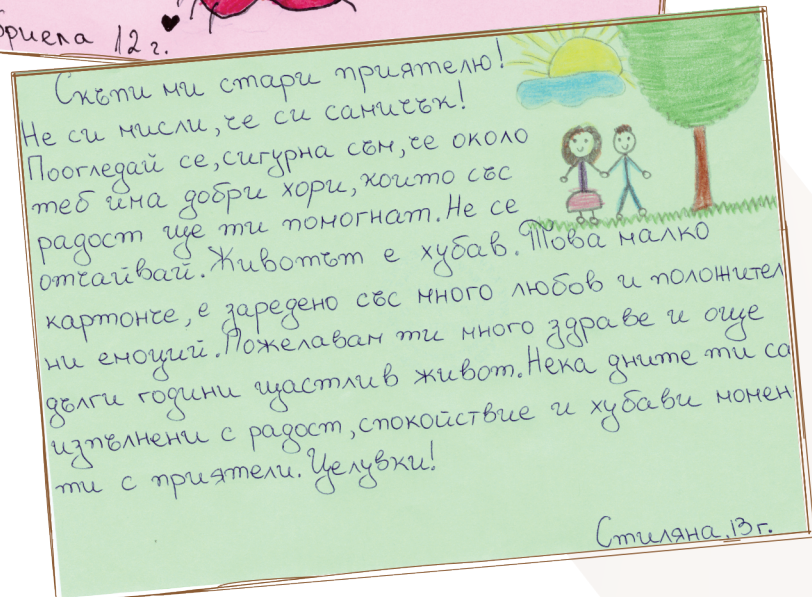 бриела 12 г.
Скъпи ми стари приятелю!
Не си мисли, че си самичък!
Поогледай се, сигурна съм, че около
теб има добри хори, които със
радост ще ти помогнат. Не се
отчайвай. Животът е хубав. Това малко
картонче, е заредено със много любов и положител
ни емоций. Пожелавам ти много здраве и още
дълги години щастлив живот. Нека дните ти са
изпълнени с радост, спокойствие и хубави момен
ти с приятели. Целувки!
Стиляна, 13 г.